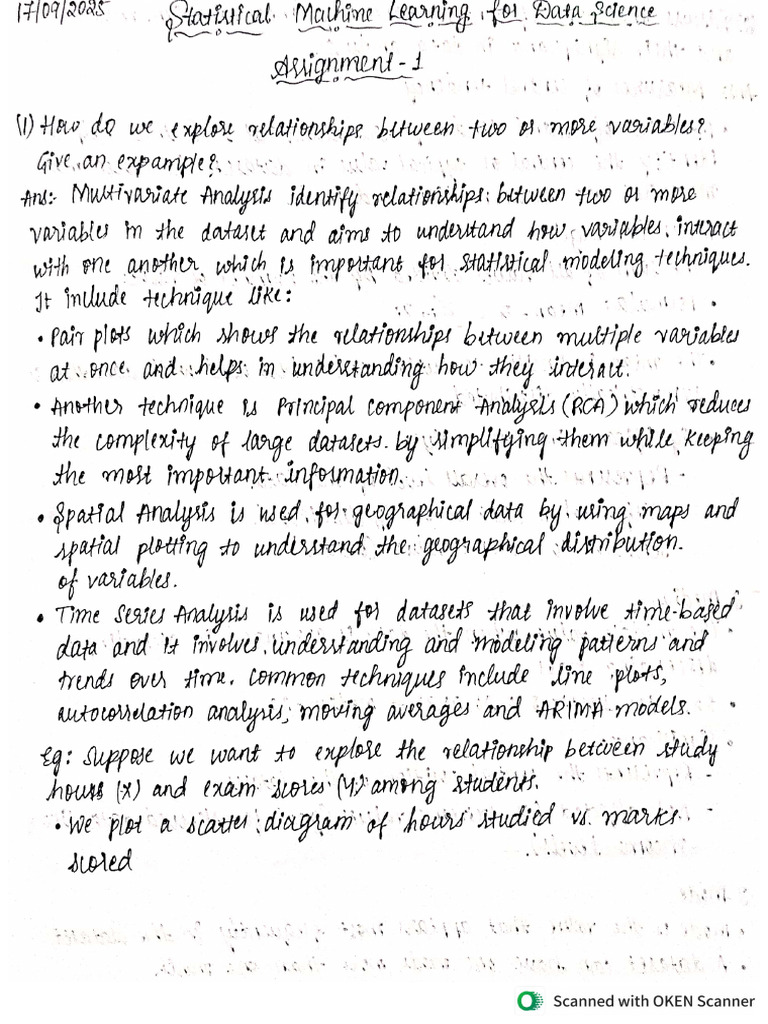 17/09/2025 Statistical Machine Learning for Data Science
Assignment-1
(1) How do we explore relationships between two or more variables?
Give an expample?
Ans:- Multivariate Analysis identify relationships between two or more
variables in the dataset and aims to understand how variables interact
with one another which is important for statistical modeling techniques.
It include technique like:
• Pair plots which shows the relationships between multiple variables
at once and helps in understanding how they interact.
• Another technique is Principal Component Analysis (PCA) which reduces
the complexity of large datasets by simplifying them while keeping
the most important information.
• Spatial Analysis is used for geographical data by using maps and
spatial plotting to understand the geographical distribution
of variables.
• Time Series Analysis is used for datasets that involve time-based
data and it involves understanding and modeling patterns and
trends over time. Common techniques include line plots,
autocorrelation analysis, moving averages and ARIMA models.
Eg: Suppose we want to explore the relationship between study
hours (X) and exam scores (Y) among students.
• We plot a scatter diagram of hours studied vs. marks
scored
Scanned with OKEN Scanner